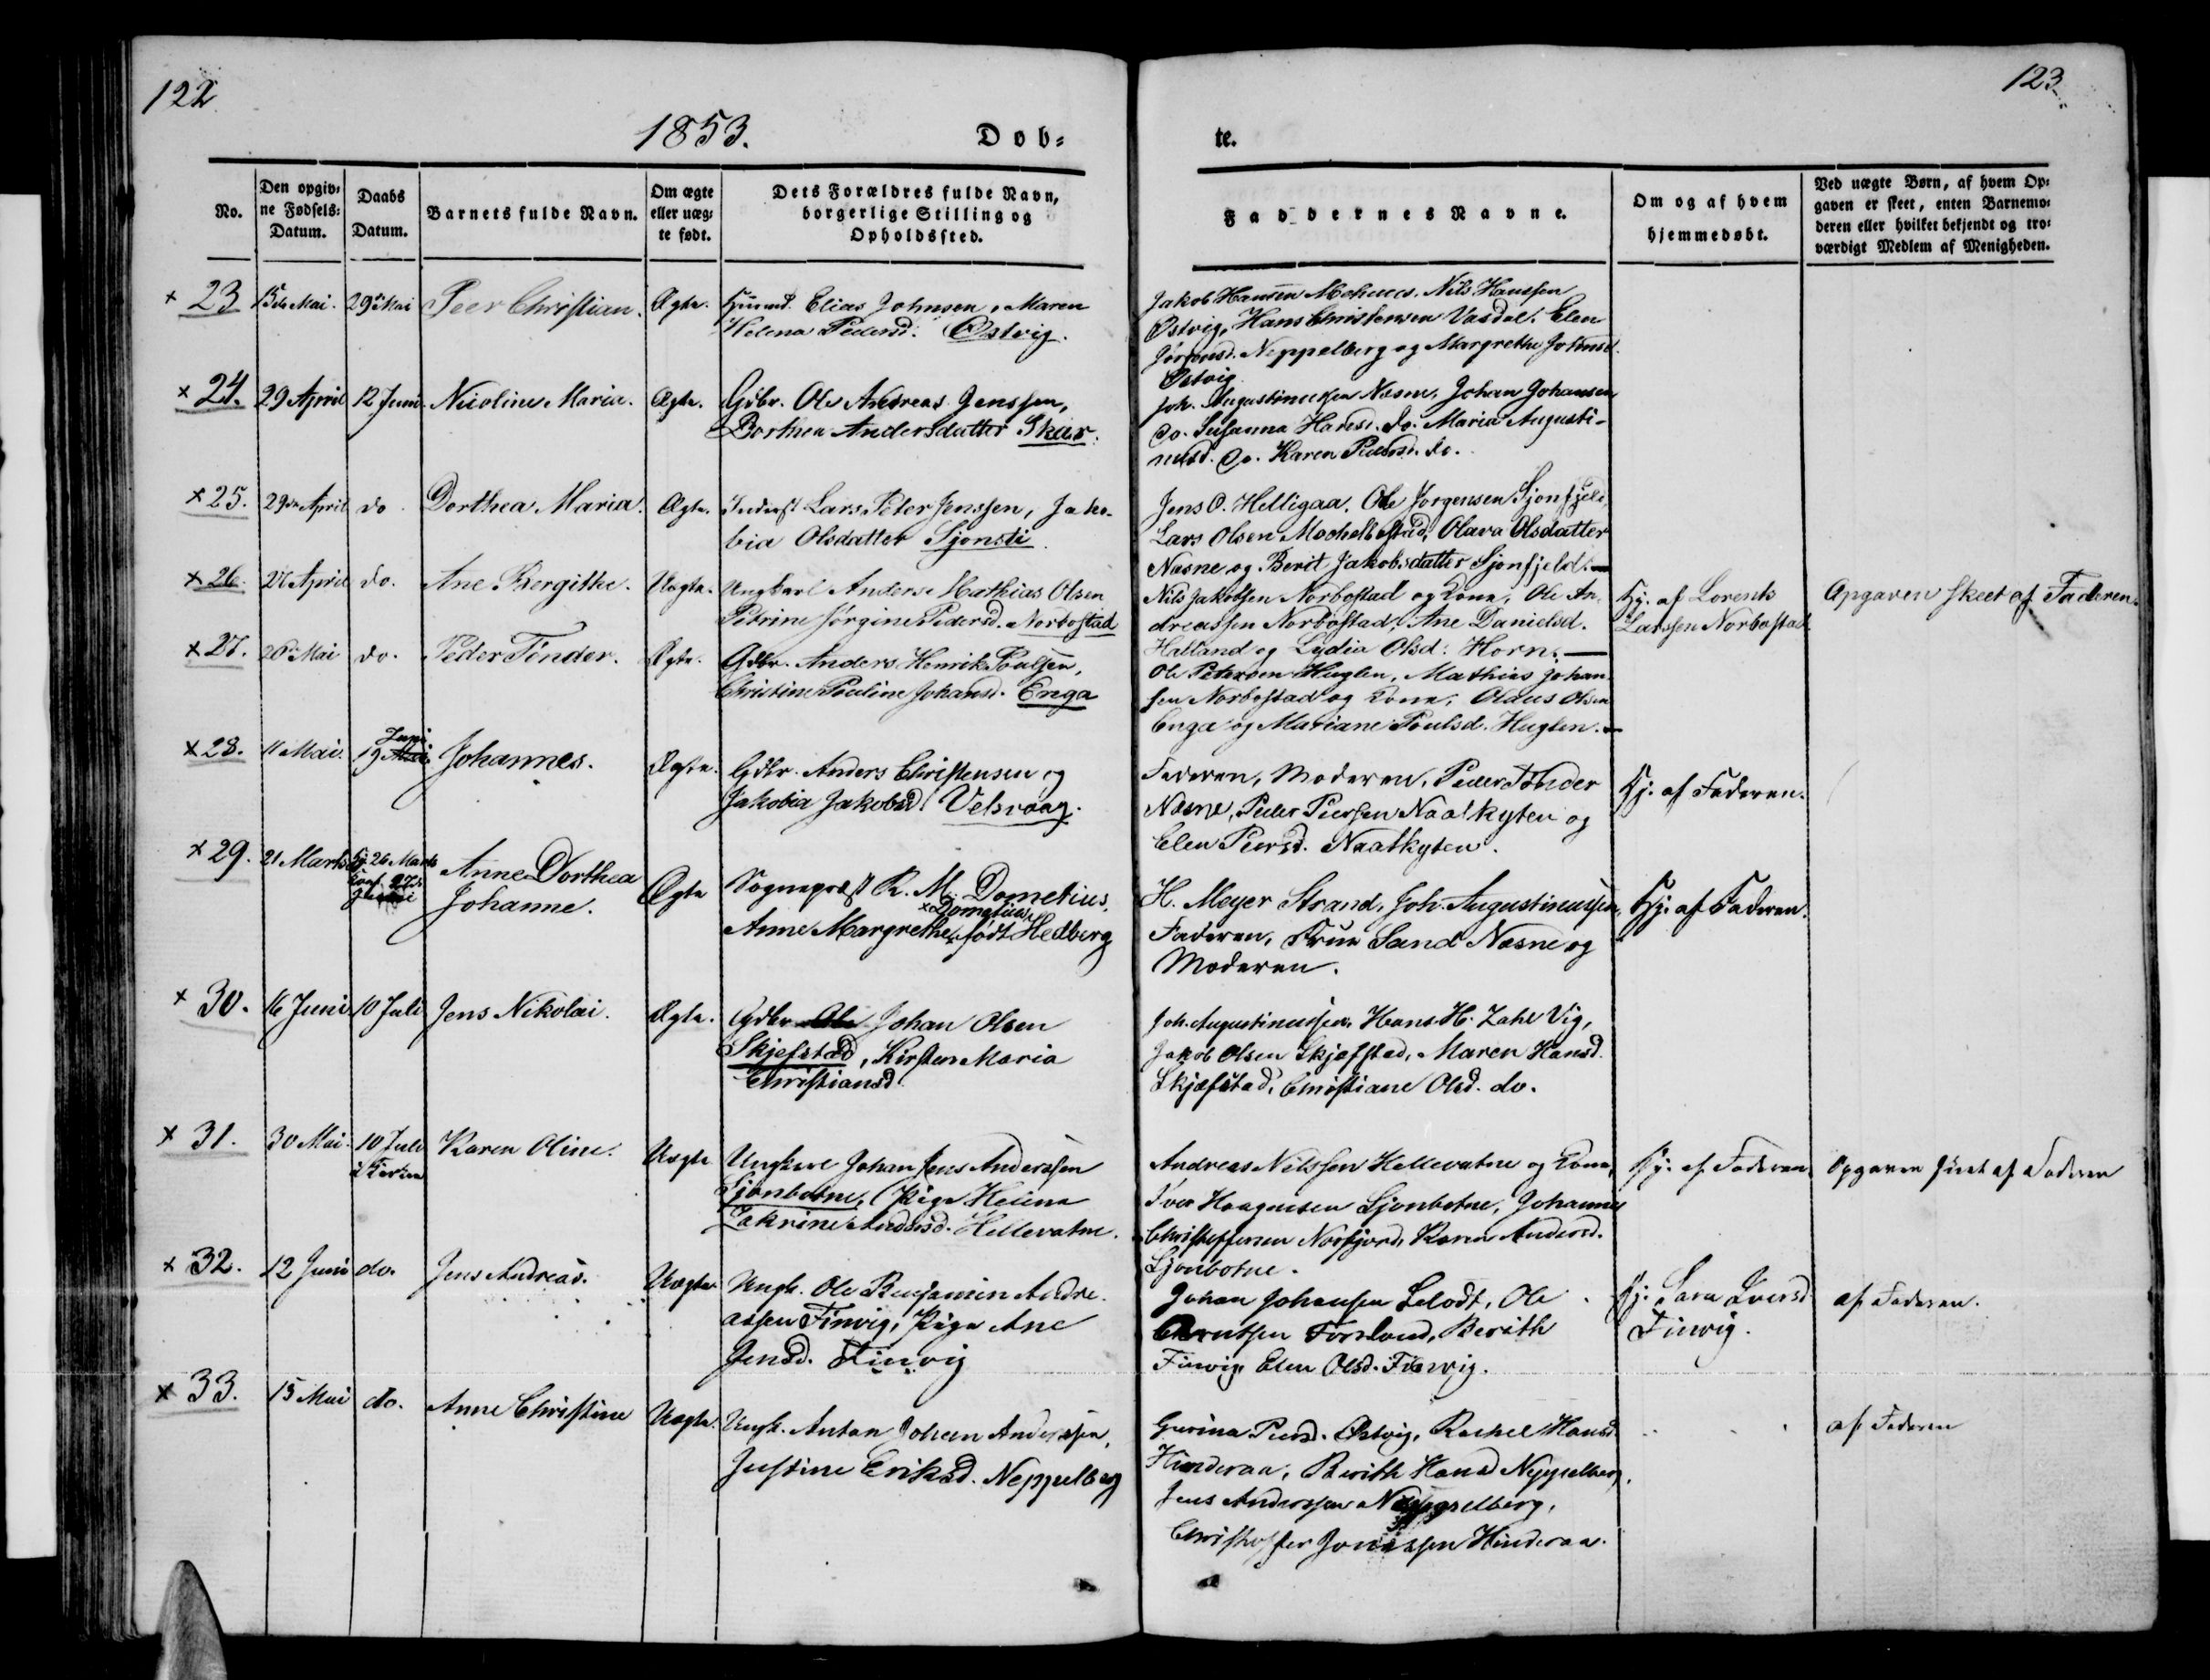 122
123
1853.
Dob-
te.
No.
Den opgiv-
ne Fødsels-
Datum.
Daabs
Datum.
Barnets fulde Navn.
Om ægte
eller uæg-
te født.
Dets Forældres fulde Navn,
borgerlige Stilling og
Opholdssted.
Faddernes Navne.
Om og af hvem
hjemmedøbt.
Ved uægte Børn, af hvem Op-
gaven er skeet, enten Barnemo-
deren eller hvilket bekjendt og tro-
værdigt Medlem af Menigheden.
× 23 15de Mai. 29de Mai Peer Christian. Ægte. Elias Johnsen, Maren
Helena Pedersd. Østvig.
Jakob Hansen Nils Hanssen
Østvig, Hans Christensen Vasdal. Elen
Jørgensd. Neppelberg og Margrethe Johnsd.
Østvig
× 24. 29 April 12 Juni Nicoline Maria. Ægte. Gdbr. Ole Andreas Jenssen,
Dorthea Andersdatter Skar.
Joh. Augustinussen Næsne, Johan Johansen
do. Susanna Hansd. do. Maria Augusti-
nusd. do. Karen Pedersd. do.
× 25. 29de April do Dorthea Maria. Ægte. Inderst Lars Peter Jenssen, Jako-
bia Olsdatter Sjonsti
Jens O. Helligaa, Ole Jørgensen Sjonfjeld,
Lars Olsen Mechelbostad, Olava Olsdatter
Næsne og Berit Jakobsdatter Sjonfjeld. —
× 26. 27 April do. Ane Bergithe. Uægte. Ungkarl Anders Mathias Olsen
Petrine Jørgine Pedersd. Norbostad
Nils Jakobsen Norbostad og Kone, Ole An-
dreassen Norbostad, Ane Danielsd.
Halland og Lydia Olsd. Horn. —
Hj. af Lorents
Larssen Norbostad.
Opgaven skeet af Faderen.
× 27. 26de Mai do. Peder Tønder. Ægte. Gdbr. Anders Henrik Poulsen,
Christine Pauline Johansd. Enga
Ole Petersen Huglen, Mathias Johan-
sen Norbostad og Kone, Oldus Olsen
Enga og Mariane Poulsd. Huglen. —
× 28. 11 Mai. 19 Juni Mai Johannes. Ægte. Gdbr. Anders Christensen og
Jakobia Jakobsd. Velsvaag.
Faderen, Moderen, Peder Tønder
Næsne, Peder Peersen Naalkyten og
Elen Peersd. Naalkyten.
Hj. af Faderen.
× 29. 21 Marts Hj. 26 Marts Anne Dorthea
Johanne. Ægte Sognepræst R. M. Dometius,
× Dometius
Anne Margrethe × født Hedberg
H. Meyer Strand, Joh. Augustinussen,
Faderen, Frue Sand Næsne og
Moderen.
Hj. af Faderen.
× 30. 16 Juni 10 Juli Jens Nikolai. Ægte. Gdbr. Ole Johan Olsen
Skjefstad, Kirsten Maria
Christiansd.
Joh. Augustinussen, Hans H. Zahl Vig,
Jakob Olsen Skjæfstad, Maren Hansd.
Skjæfstad, Christiane Olsd. do.
× 31. 30 Mai. 10 Juli
i Kirken Karen Oline. Uægte Ungkarl Johan Jens Anderssen
Sjonbotne, Pige Helena
Zakrine Andersd. Hellevatne.
Andreas Nilssen Hellevatne og Kone,
Iver Haagensen Sjonbotne, Johannes
Christoffersen Norfjord, Karen Andersd.
Sjonbotne.
Hj. af Faderen.
Opgaven skeet af Faderen
× 32. 12 Juni do. Jens Andreas. Uægte Ungk. Ole Benjamin Andre-
assen Finvig, Pige Ane
Jensd. Finvig
Johan Johansen Selodt, Ole
Berntsen Forsland, Berith
Finvig, Elen Olsd. Finvig.
Hj. Sara Iversd.
Finvig.
af Faderen.
× 33. 15 Mai do. Anne Christine Uægte. Ungk. Anton Johan Anderssen,
Justine Eriksd. Neppelberg
Gurina Peersd. Østvig, Rachel Hansd.
Hinderaa, Berith Hansd. Neppelberg,
Jens Anderssen Neppelberg,
Christoffer Jonassen Hinderaa.
af Faderen